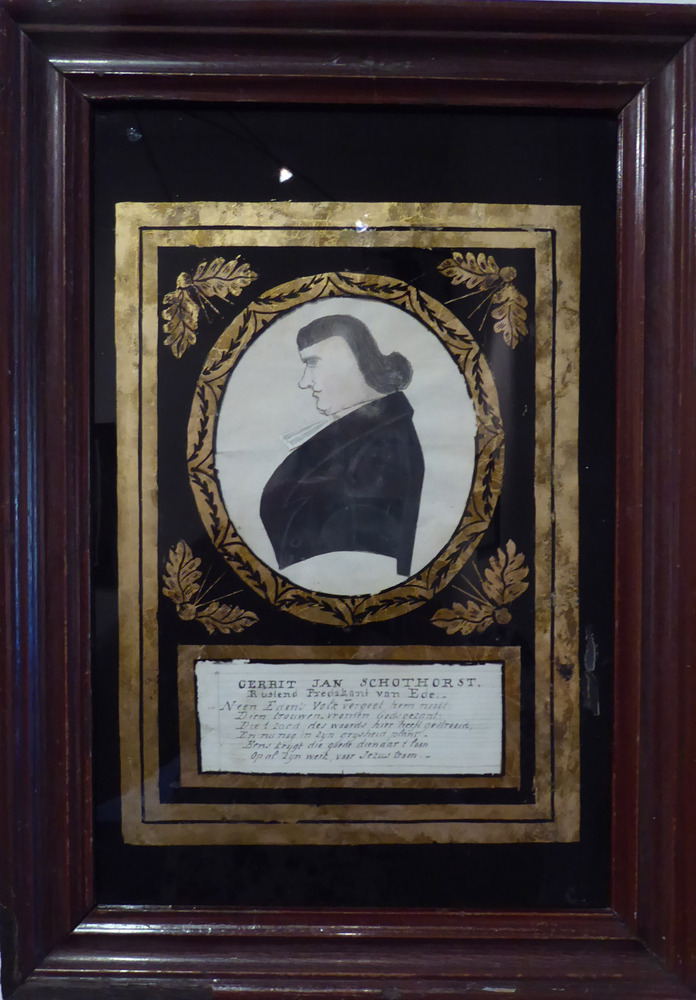 GERRIT JAN SCHOTHORST.
Rustend Predikant van Ede.
Neen Edens Volk vergeet hem nooit:
Dien trouwen, vromen Gods gezant:
Die t zaad des woords, hier heeft gestrooid,
En nu nog in zyn grysheid plant.
Eens krygt die goede dienaar t loon
Op al zyn werk, voor Jezus troon.